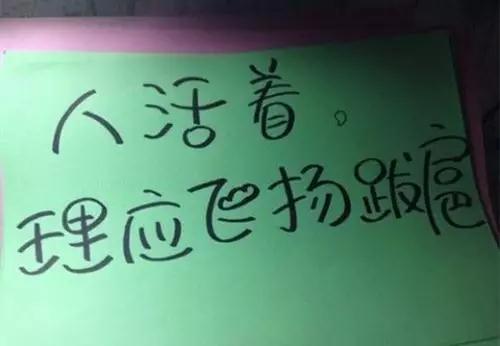 人活着。
理应飞扬跋扈